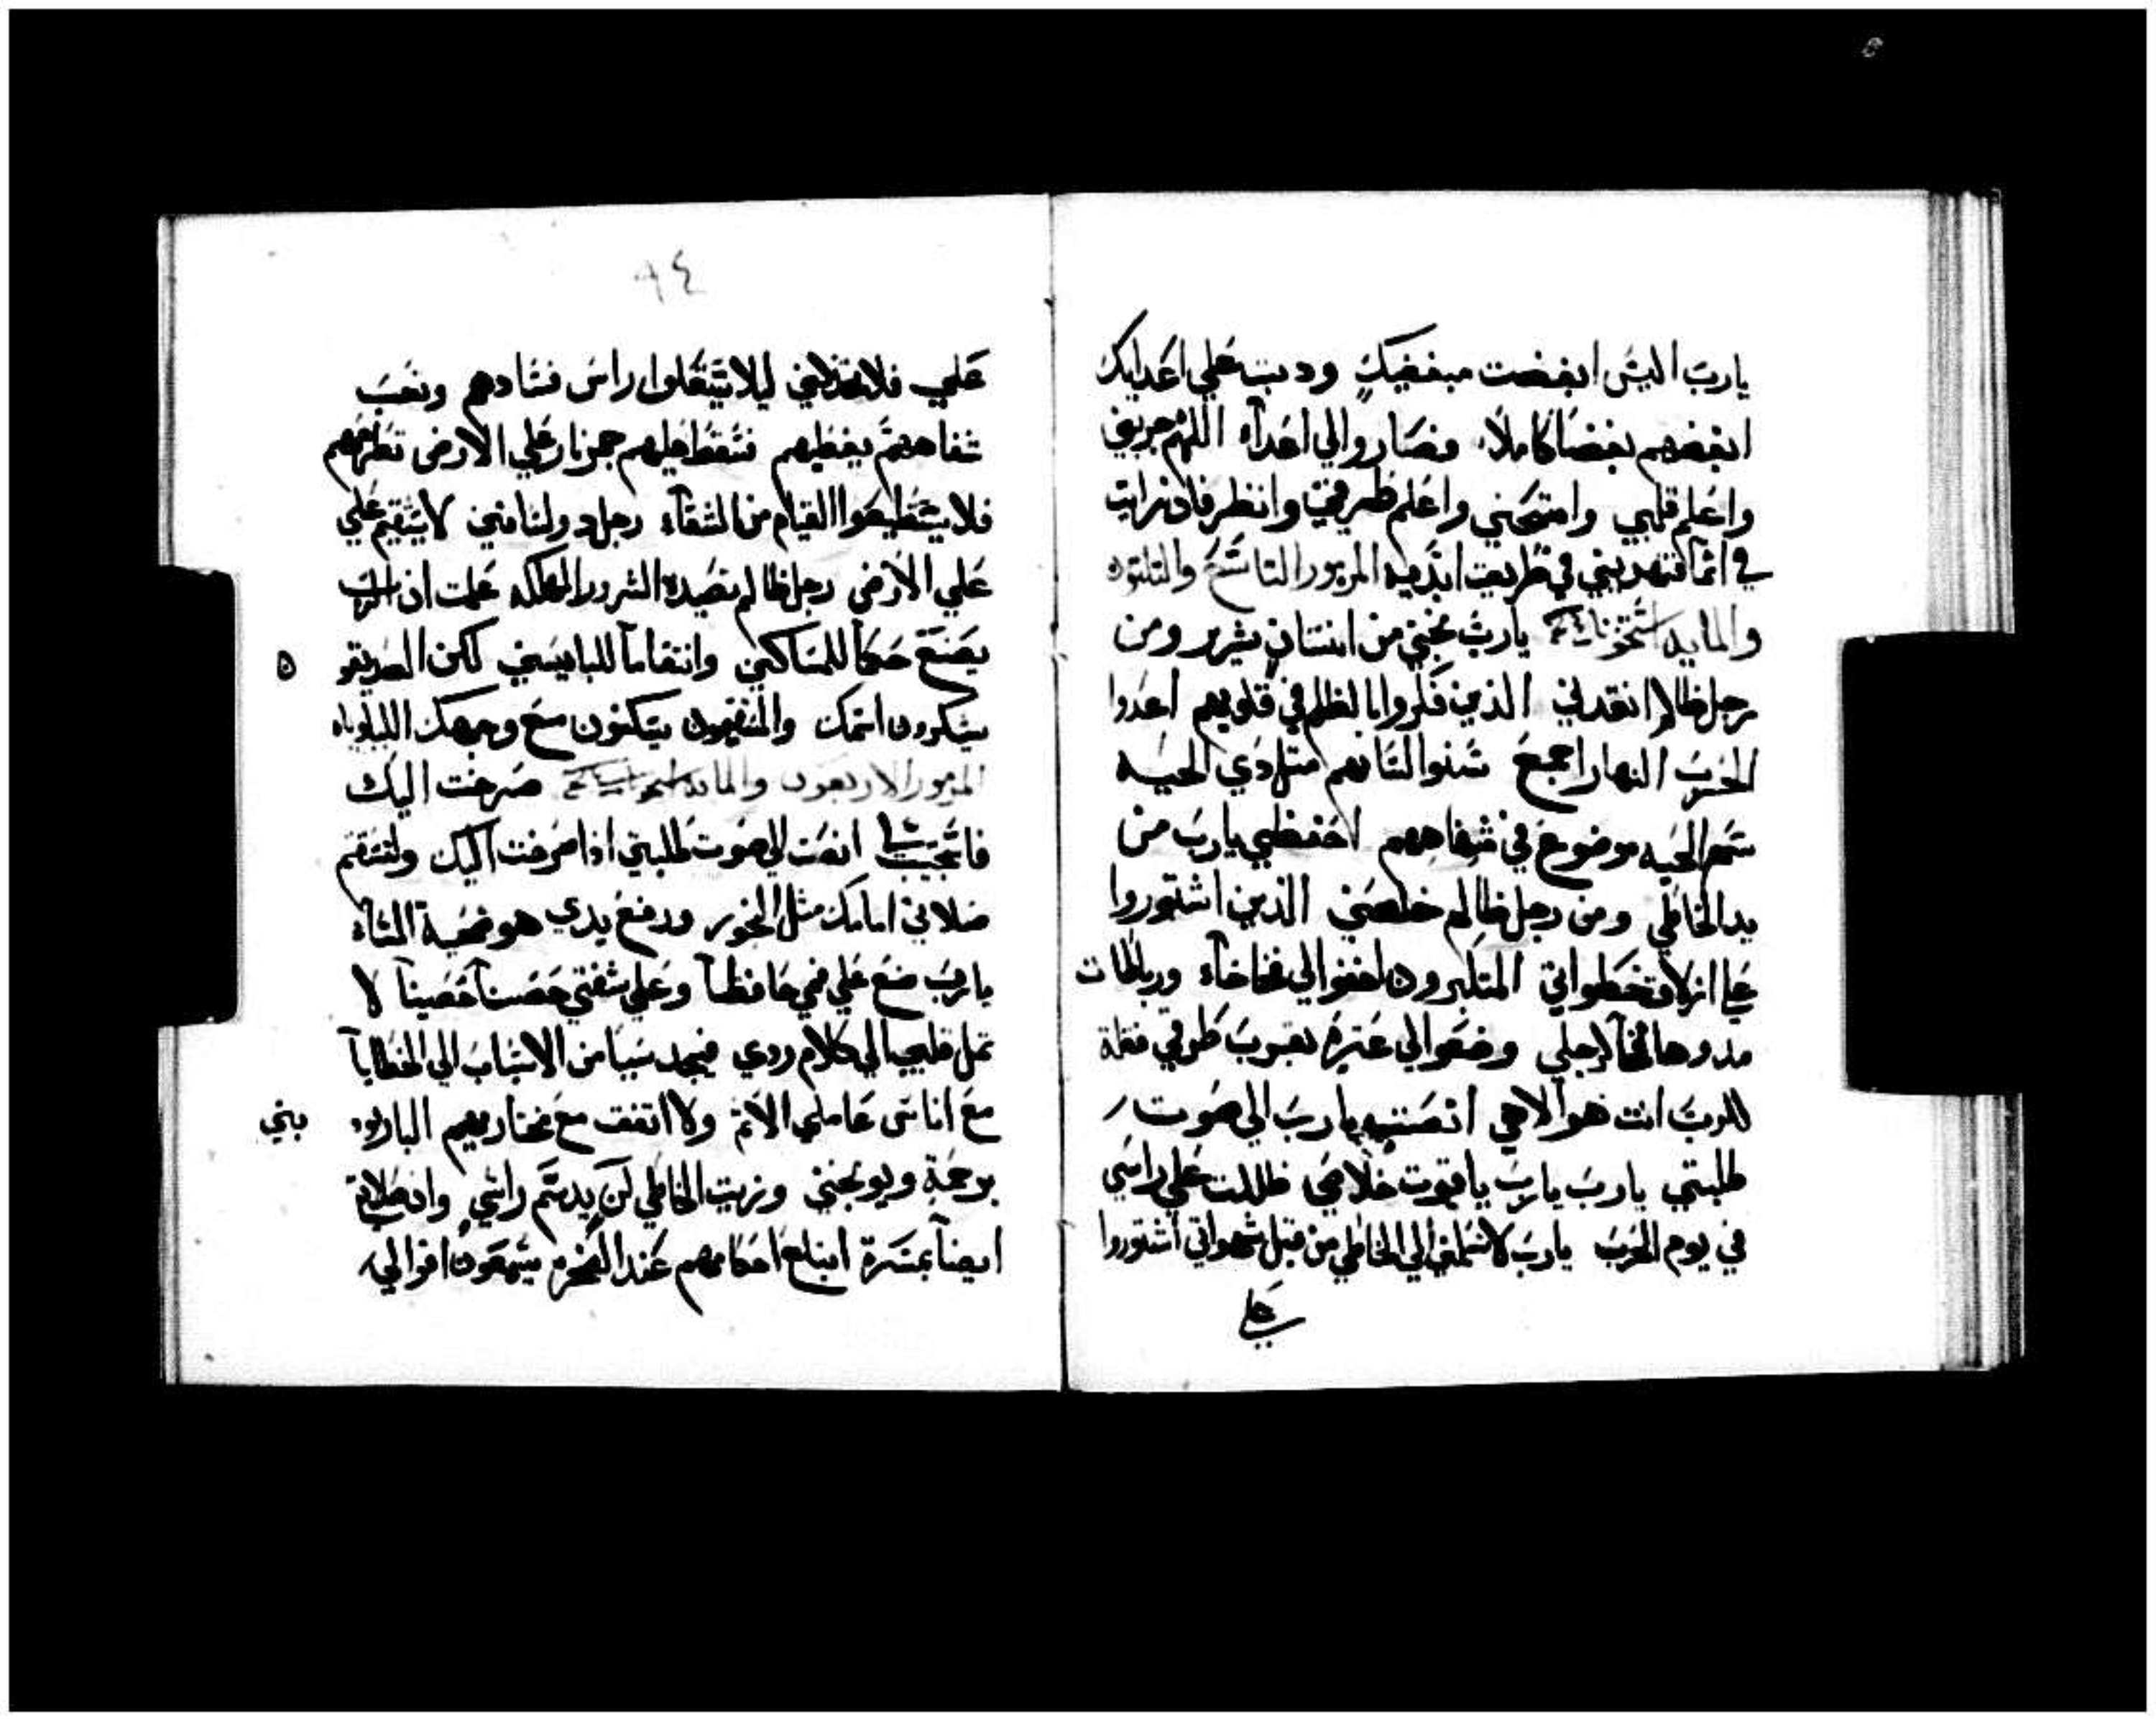 يارب اليس ابغضت مبغضيك ودبت علي اعدايك
ابغضهم بغضا كاملا وصاروا لي اعداء اللهم جربني
واعلم قلبي وامتحني واعلم طرقي وانظر فان رايت
في اثما فتهديني في طريقك ابديه المزمور التاسع والتلتون
والمايه يارب نجني من انسان شرير ومن
رجل ظالم انقدني الذين فكروا بالظلم في قلوبهم اعدوا
الحرب النهار اجمع سنوا لسانهم متل دي الحيه
سم الحيه موضوع في شفاههم احفظني يارب من
يد الخاطي ومن رجل ظالم خلصني الذين اشتوروا
علي ازلاق خطواتي المتكبرون اخفوا لي فخاخاء ورباطات
مدوها فخاً لرجلي وضعوا لي عترة بقرب طرقي فقلة
للرب انت هو الاهي انصت يارب الي صوت
طلبتي يارب يارب ياقوت خلاصي ظللت علي راسي
في يوم الحرب يارب لا تسلمني الي الخاطي من قبل شهواتي اشتوروا
علي
٩٤
علي فلا تخذلني ليلا يتعلوا راس فسادهم وتعب
شفاههم يغطيهم فتسقط عليهم جمر نار علي الارض تطرحهم
فلا يستطيعوا القيام من الشقاء رجل دو لسانين لا يستقيم علي
علي الارض رجل ظالم تصيده الشرور المهلكه علمت ان الرب
يصنع حكماً للمساكين وانتقاماً للبايسين لكن الصديقو
ن
يشكرون اسمك والمستقيمون يسكنون مع وجهك الليلوياه
المزمور الاربعون والمايه صرخت اليك
فاستجب لي انصت لي صوت طلبتي اذا صرخت اليك ولتستقم
صلاتي امامك مثل البخور ورفع يدي هو ضحية المساء
يارب ضع علي فمي حافظاً وعلي شفتي حصناً حصيناً لا
تمل قلبي الي كلام ردي فيجد سبباً من الاسباب الي الخطايا
مع اناس عاملي الاثم ولا اتفقت مع مختاريهم البار يود
بني
برحمة ويوبخني وزيت الخاطي لن يدسم راسي وان صلاتي
ايضاً بمسرة ابتلع احكامهم عند الصخرة يسمعون اقوالي